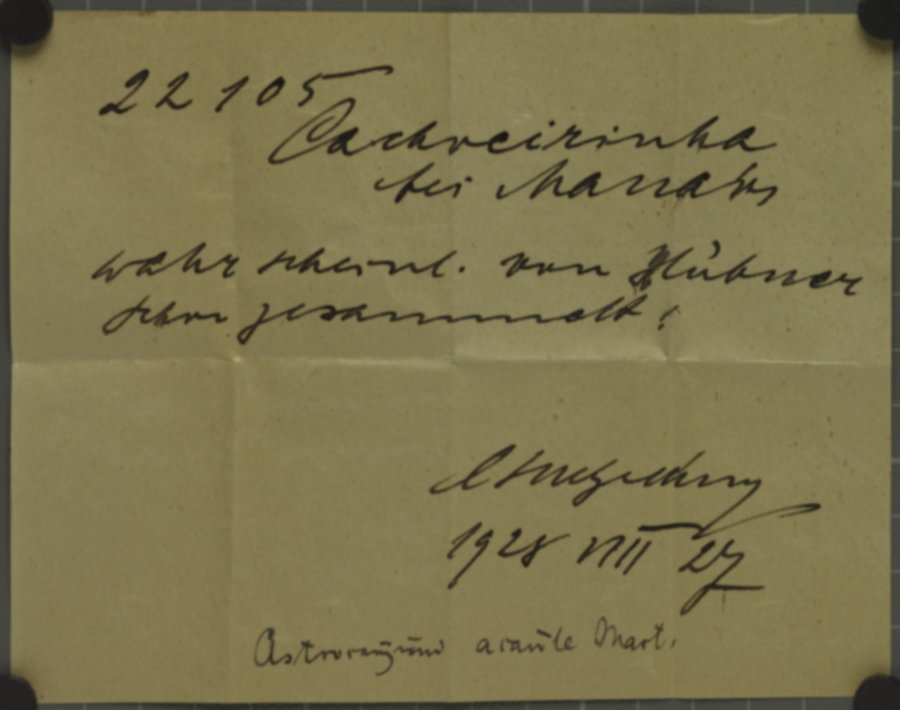 22105
Cachoeirinha
bei Manaos
wahrscheinl. von Hübner
schon gesammelt!
1928 VIII 27
Astrocaryum acaule Mart.